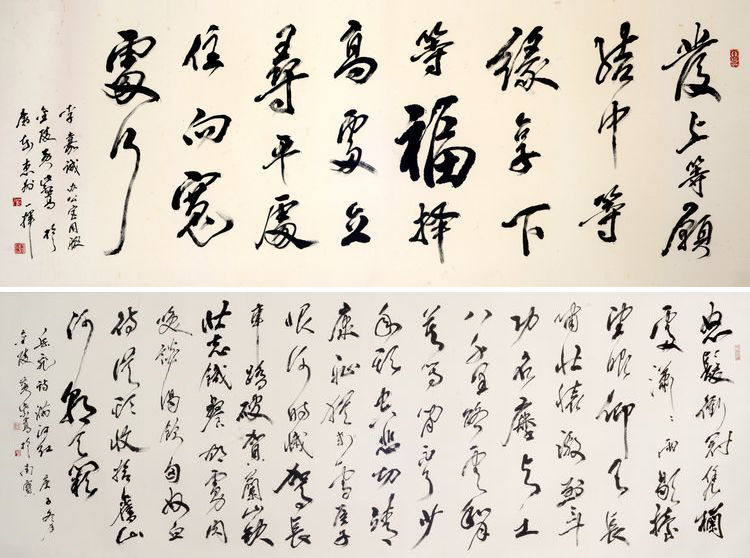 發上等願
結中等
緣享下
等福择
高處立
尋平處
住向寬
處行
李嘉诚办公室用
金陵
怒髮衝冠凭欄
處瀟瀟雨歇抬
望眼仰天長
嘯壯懷激烈三十
功名塵與土
八千里路雲和月
莫等閒白了少
年頭空悲切靖
康恥猶未雪臣子
恨何時滅驾長
車踏破賀蘭山缺
壯志饑餐胡虜肉
笑談渴飲匈奴血
待從頭收拾舊山
河朝天闕
岳飛詩满江红 庚子冬
金陵